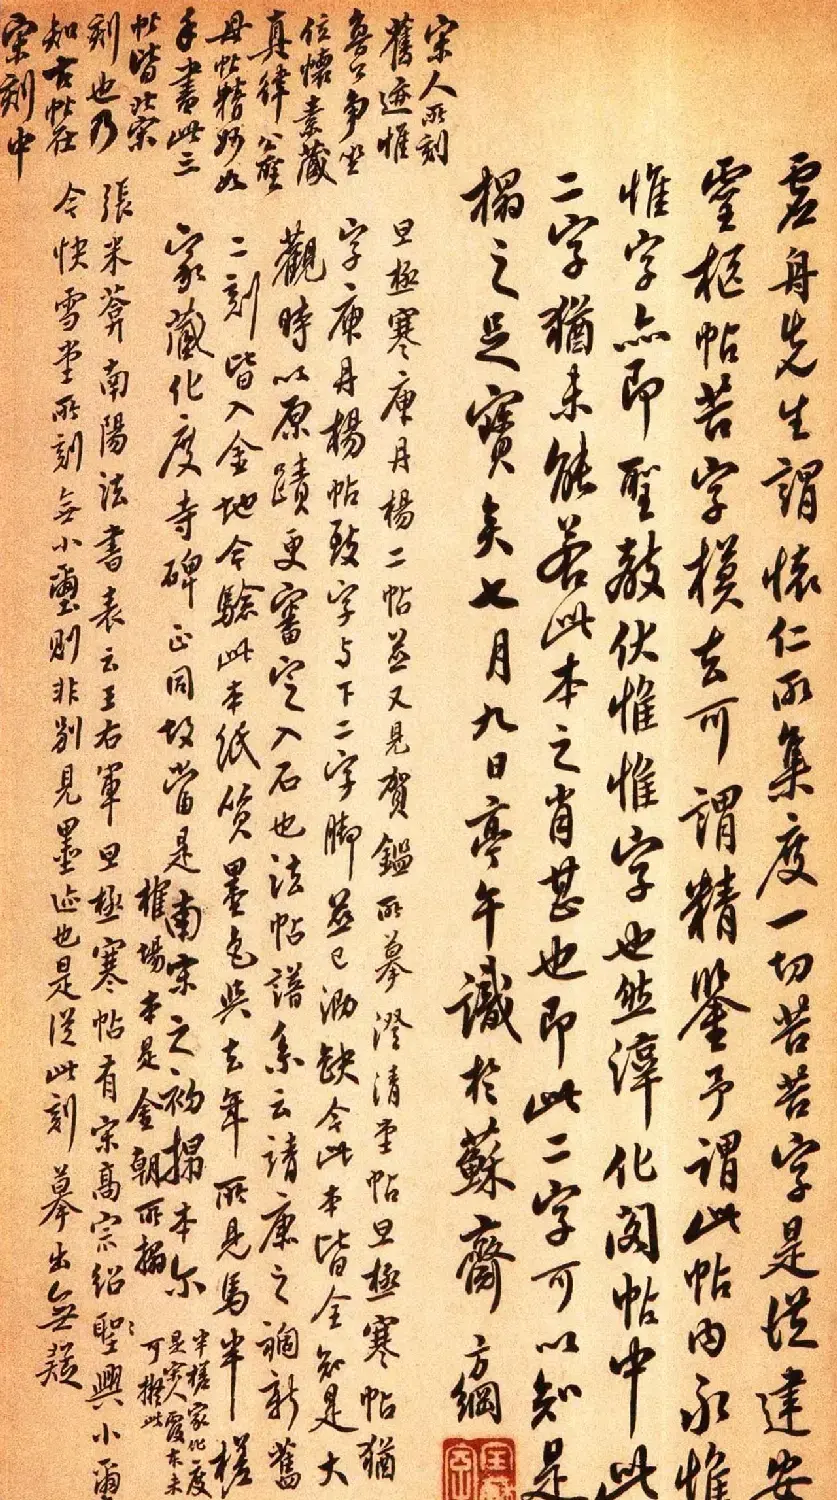 虛舟先生謂懷仁所集度一切苦苦字是從建安
靈柩帖苦字摸去可謂精鑒予謂此帖內永惟
惟字亦即聖教伏惟惟字也然淳化閣帖中此
二字猶未能若此本之肖甚也即此二字可以知是
搨之足寶矣七月九日亭午識於蘇齋 方綱
宋人所刻
舊迹惟
魯公爭坐
位懷素藏
真律公聖
母帖精妙如
手書此三
帖皆北宋
刻也乃
知古帖在
宋刻中
旦極寒庾丹楊二帖並又見賀鑑所摹澄清堂帖旦極寒帖猶
字庾丹楊帖致字与下二字腳並已泐缺今此本皆全知是大
觀時以原蹟更審定入石也法帖譜系云靖康之禍新舊
二刻皆入金地今驗此本紙質墨色與去年所見馬半槎
家藏化度寺碑正同故當是南宋之初搨本尔
半槎家化度
是宋人覆本未
可擬此
榷場本是金朝所搨
張米菴南陽法書表云王右軍旦極寒帖有宋高宗紹聖興小璽
今快雪堂所刻無小璽則非別見墨迹也是從此刻摹出無疑